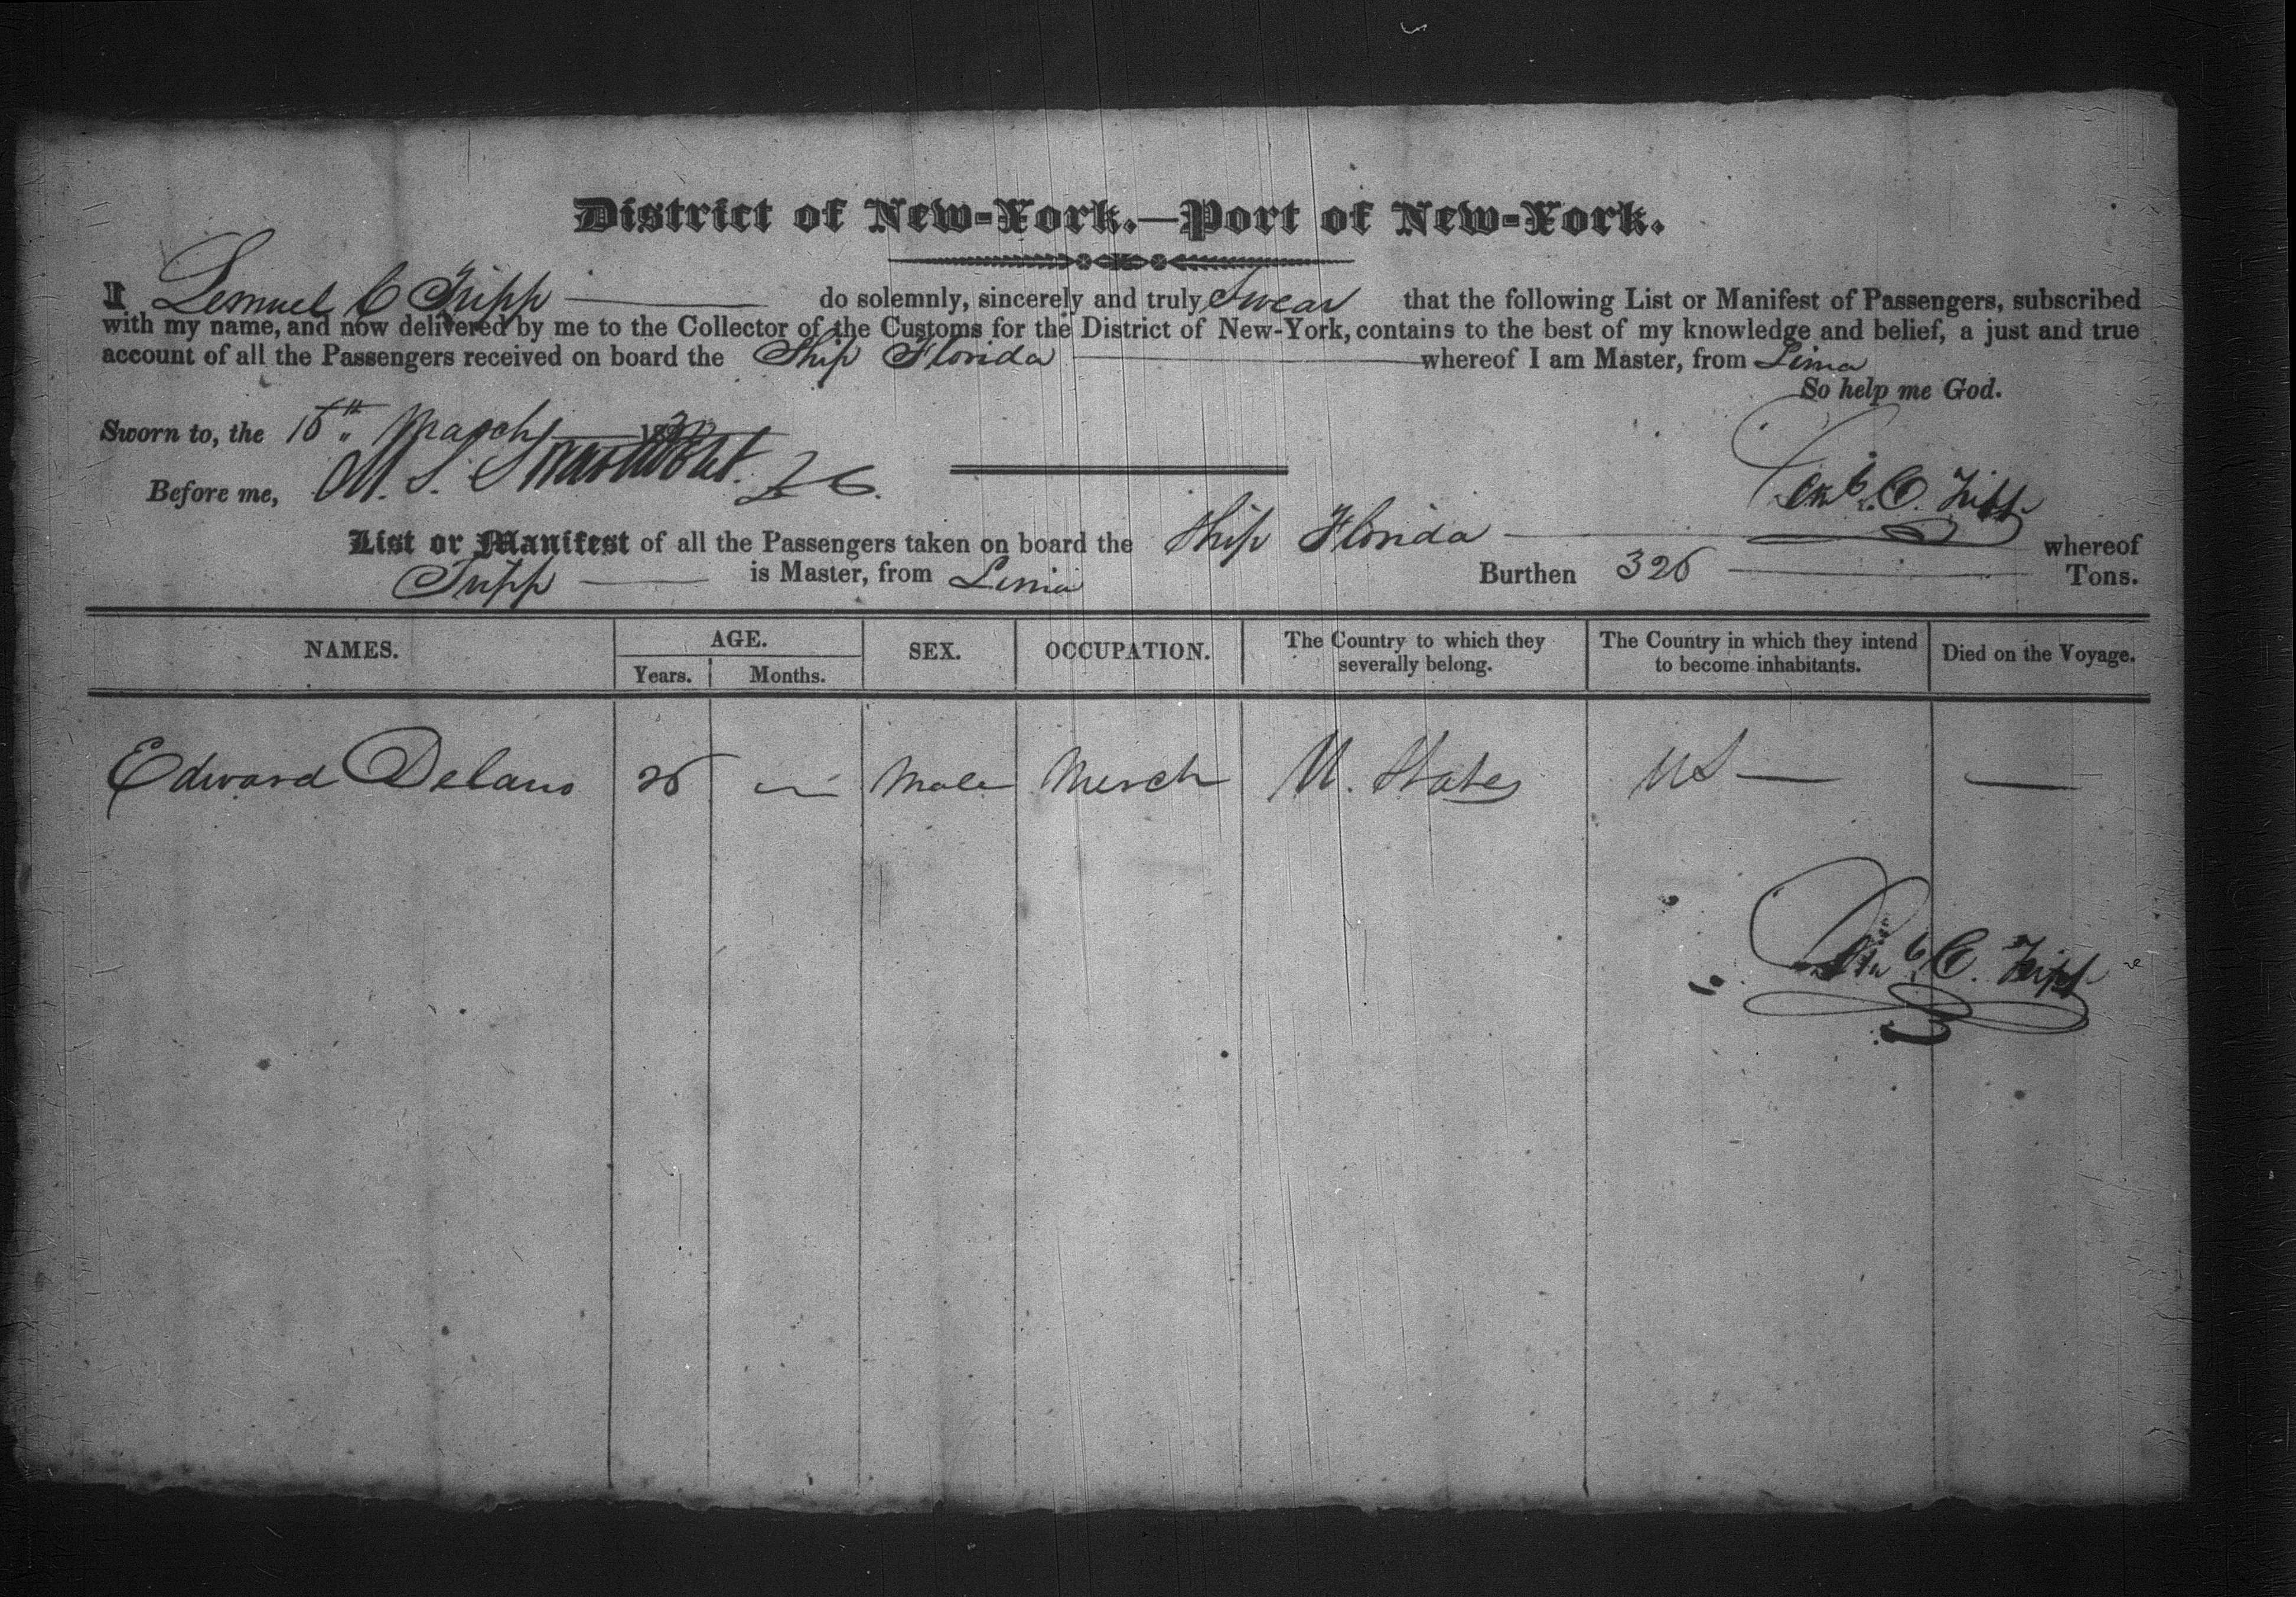 District of New-York.—Port of New-York.
I Lemuel C Tripp do solemnly, sincerely and truly Swear that the following List or Manifest of Passengers, subscribed
with my name, and now delivered by me to the Collector of the Customs for the District of New-York, contains to the best of my knowledge and belief, a just and true
account of all the Passengers received on board the Ship Florida whereof I am Master, from Lima
So help me God.
Sworn to, the 15th March
Before me, M. S. Swartwout
Leml. C. Tripp
List or Manifest of all the Passengers taken on board the Ship Florida whereof
Tripp is Master, from Lima Burthen 326 Tons.
NAMES. AGE. SEX. OCCUPATION. The Country to which they severally belong. The Country in which they intend to become inhabitants. Died on the Voyage.
Years. Months.
Edward Delano 26 — Male Merch U. States US — —
Leml. C. Tripp